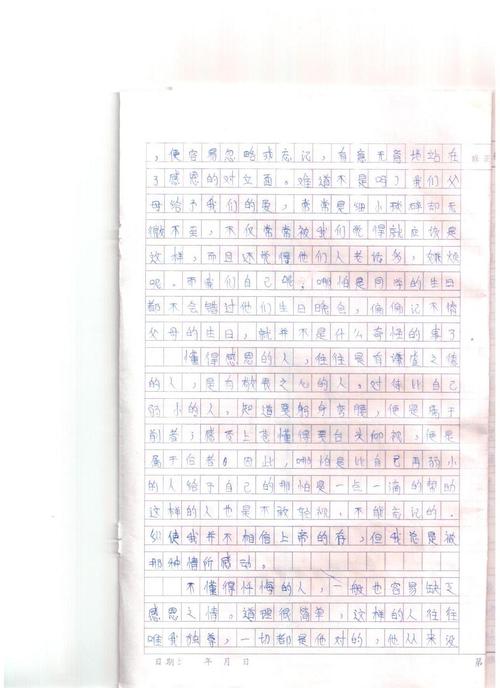 ，便容易忽略或忘记，有意无意地站在
了感恩的对立面。难道不是吗？我们父
母给予我们的爱，常常是细小琐碎却无
微不至，不仅常常被我们觉得就应该是
这样，而且还觉得他们人老话多，嫌烦
呢。而我们自己呢，哪怕是同学的生日
都不会错过他们生日晚会，偏偏记不住
父母的生日，就并不是什么奇怪的事了
懂得感恩的人，往往是有谦虚之德
的人，是有敬畏之心的人。对待比自己
弱小的人，知道要躬身弯腰，便是属于
前者；感受上苍懂得要台头仰视，便是
属于后者。因此，哪怕是比自己再弱小
的人给予自己的那怕是一点一滴的帮助
这样的人也是不敢轻视，不能忘记的．
纵使我并不相信上帝的存，但我总是被
那种情所感动。
不懂得忏悔的人，一般也容易缺乏
感恩之情。道理很简单，这样的人往往
唯我独尊，一切都是他对的，他从来没
日期： 年 月 日
第